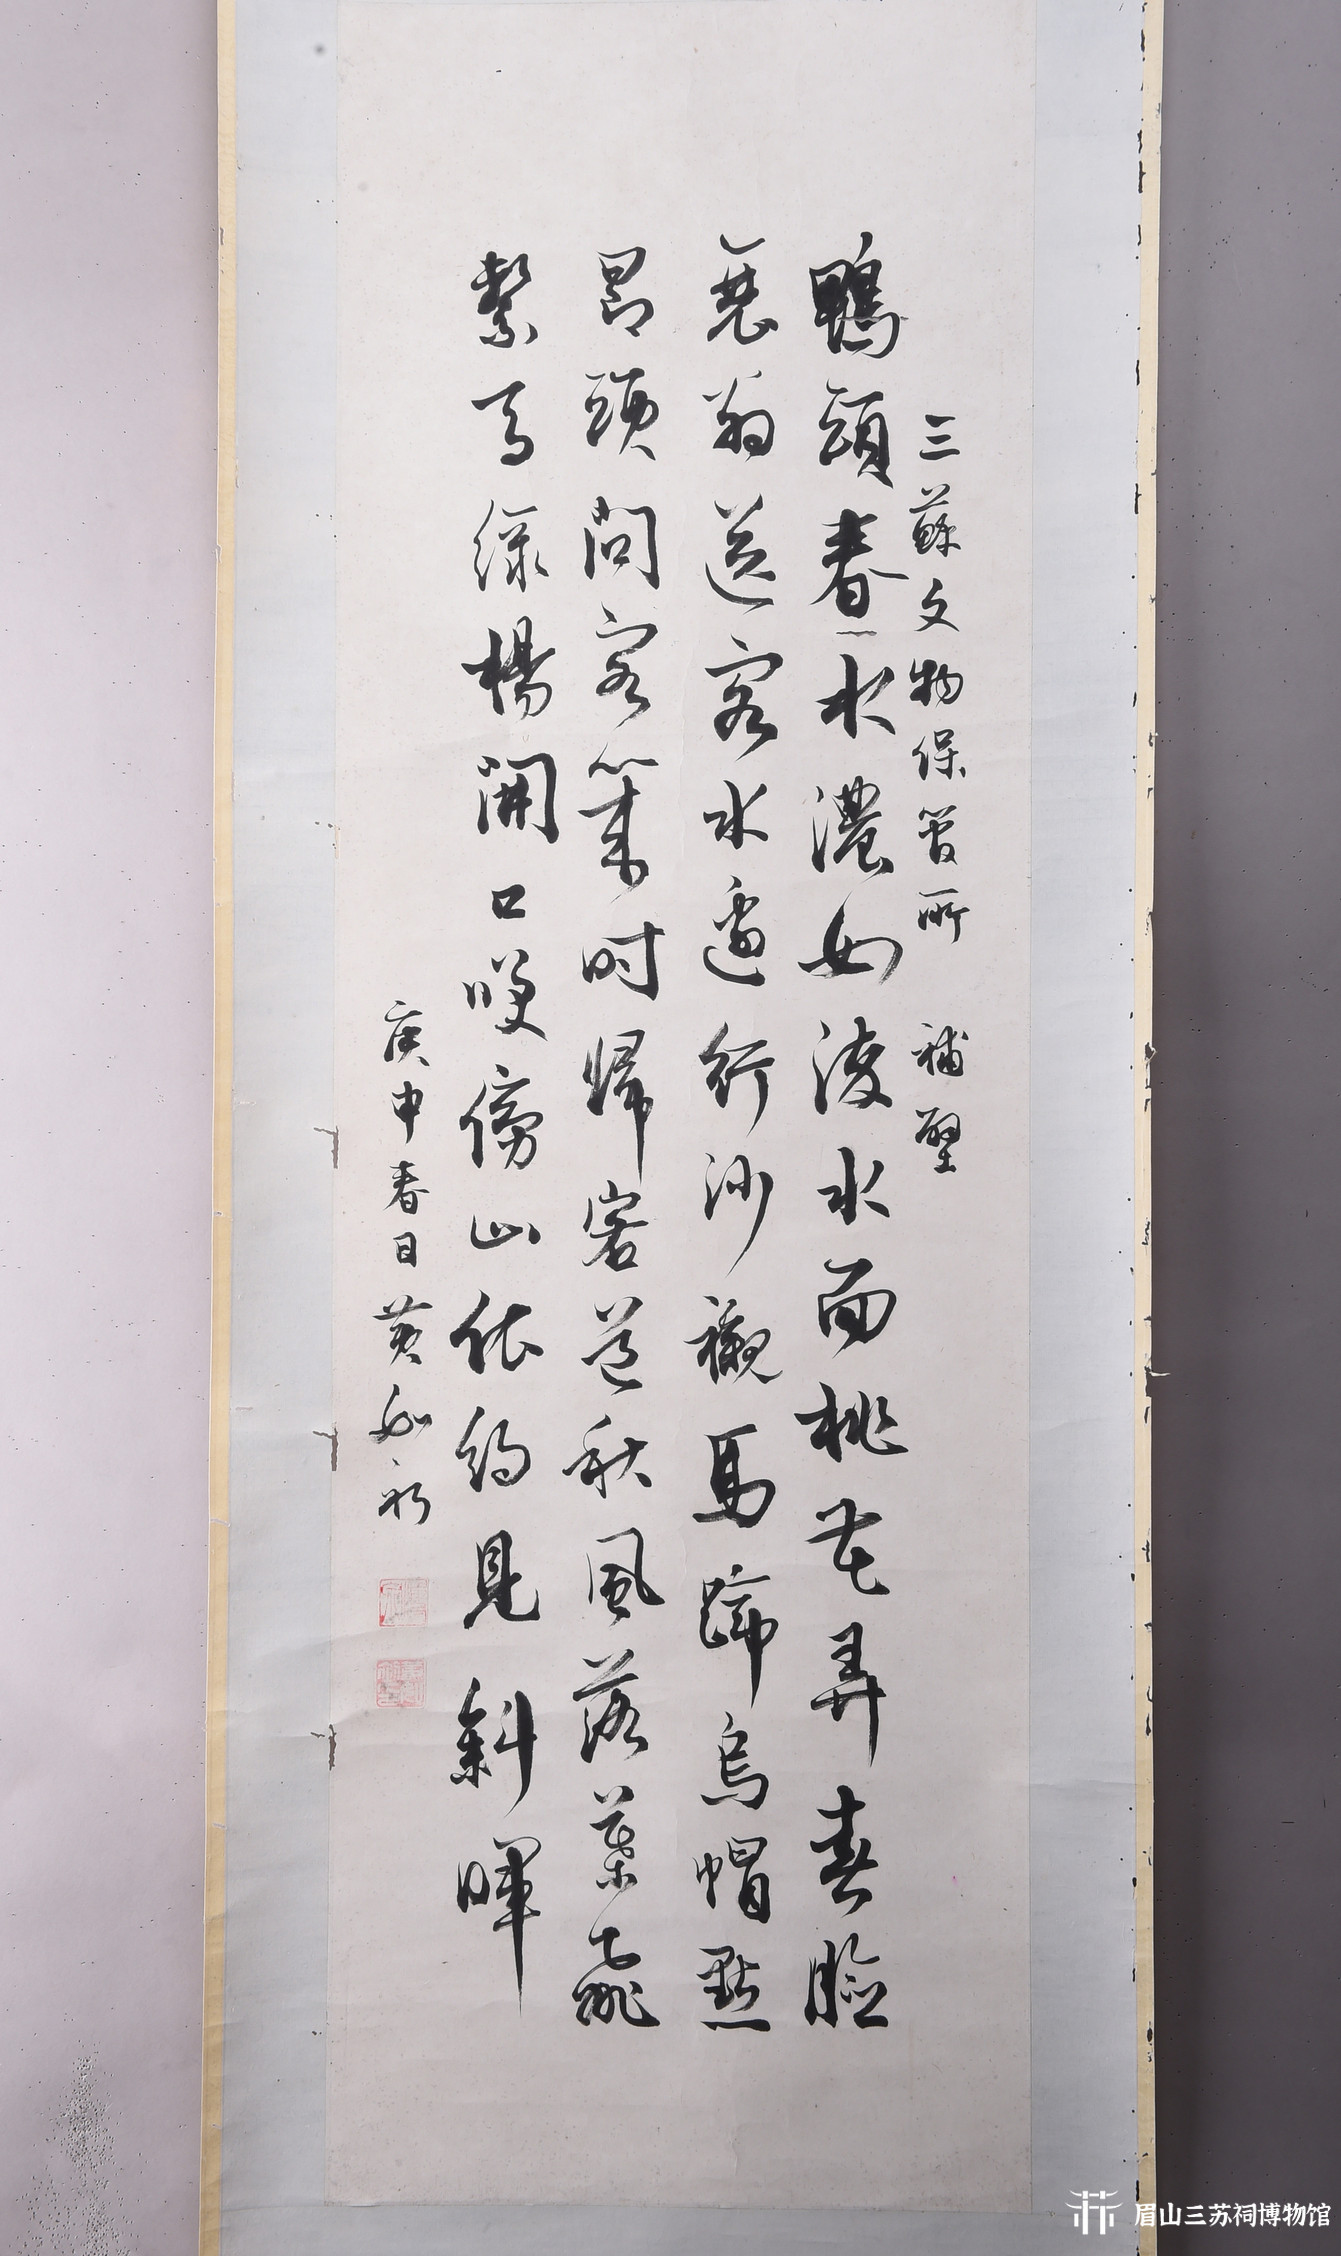 三蘇文物保管所 補壁
鴨頭春水濃如染水面桃花弄春臉
衰翁送客水邊行沙襯馬蹄烏帽點
昂頭問客幾时歸客道秋風落葉飛
繫馬綠楊開口咲傍山依約見斜暉
庚申春日黄
眉山三苏祠博物馆